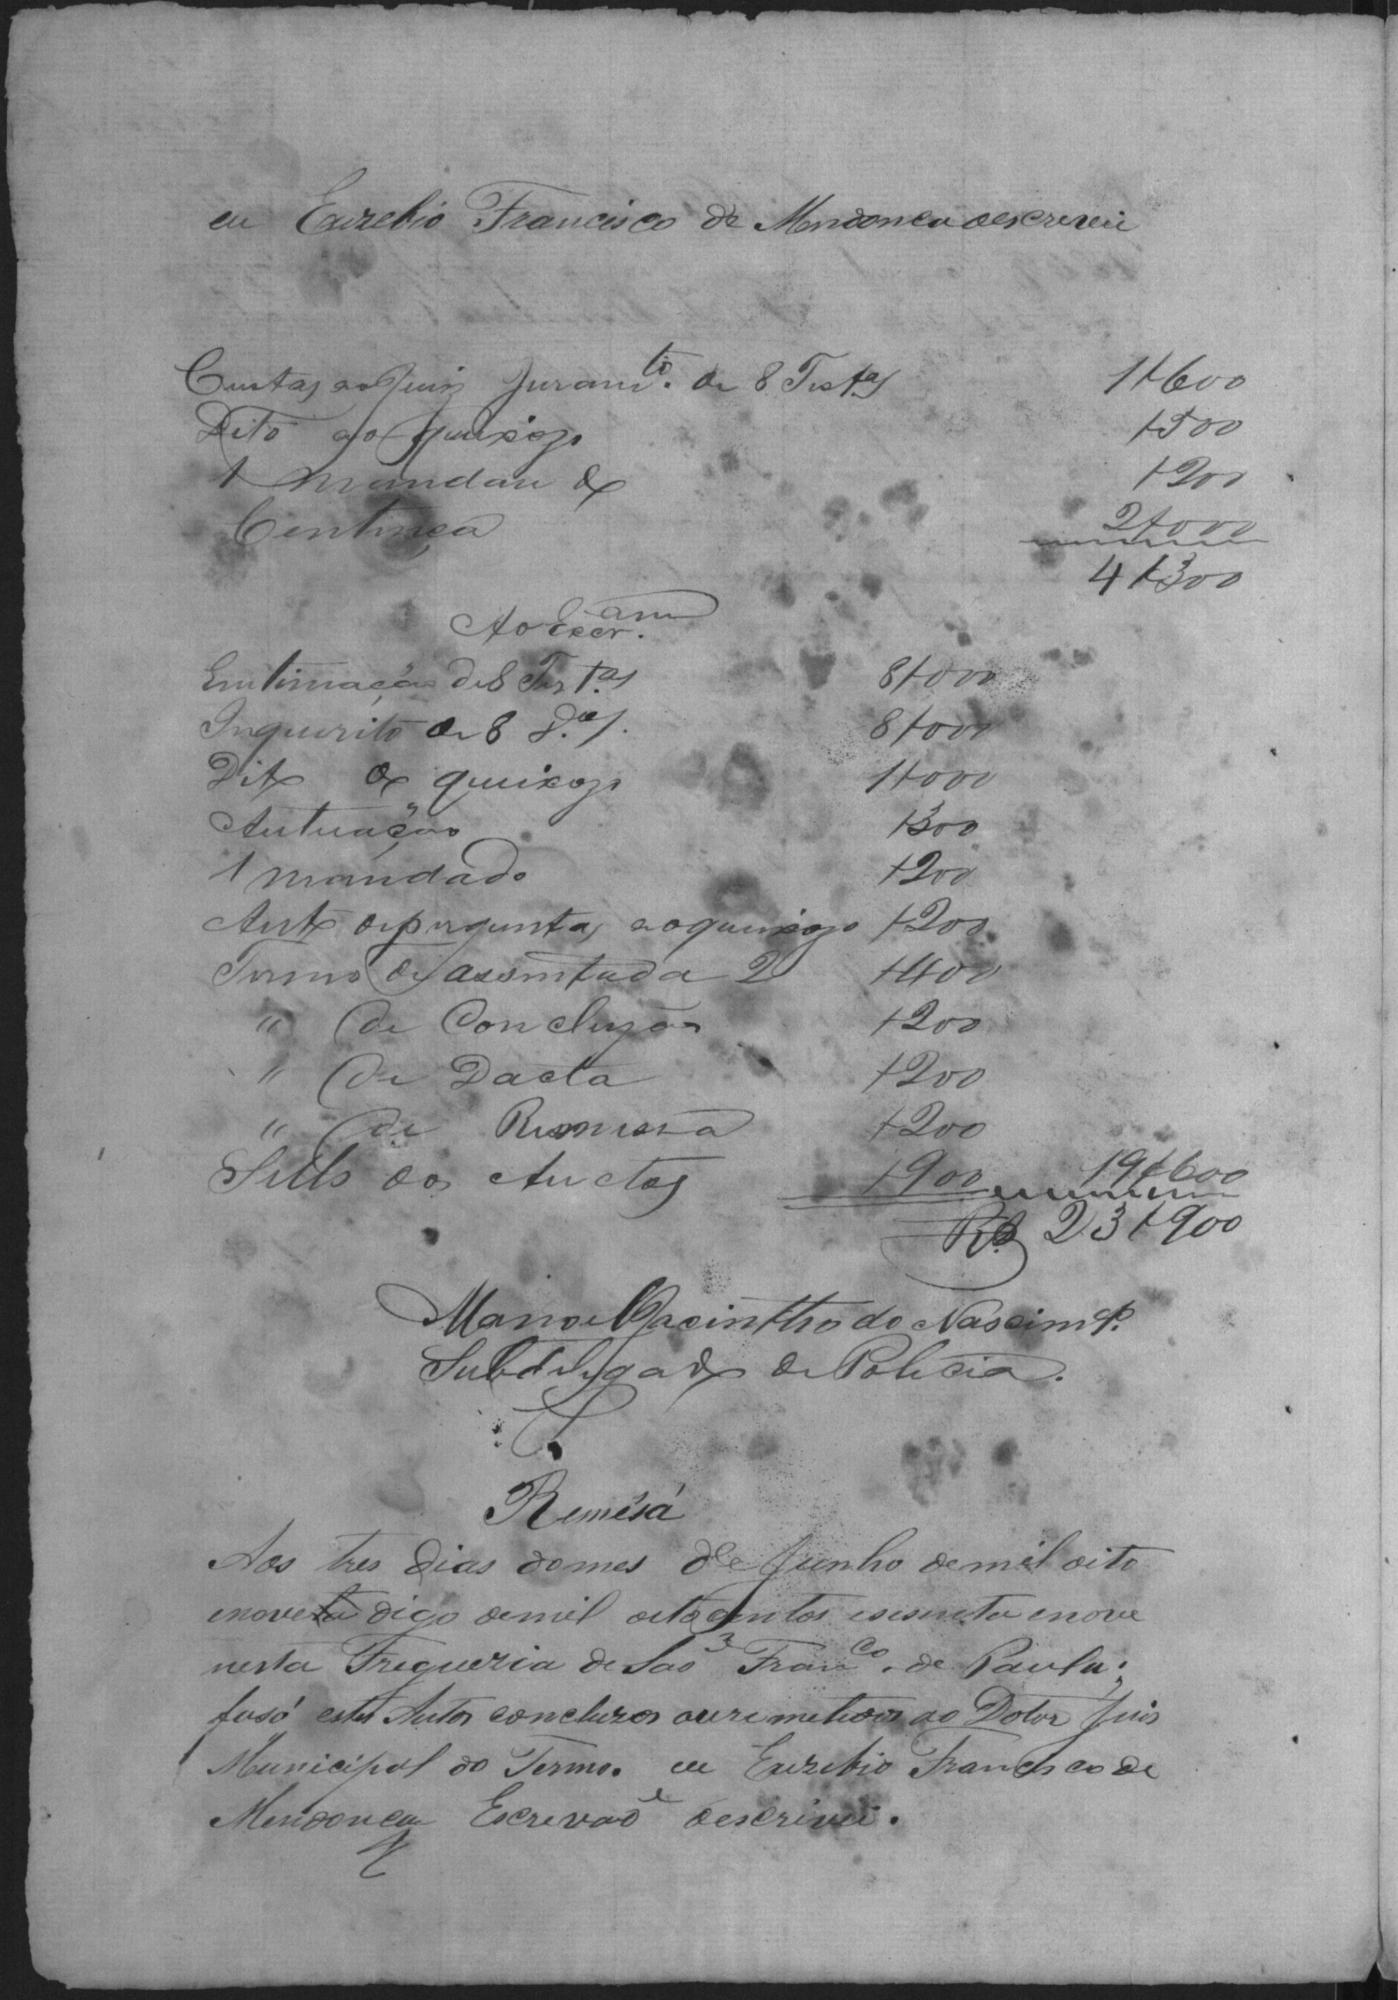 eu Euzebio Francisco de Mendonca oescreveu
Custas ao Juiz Juram.to de 8 Test.as 1$600
Dito ao queixozo $500
1 mandau do $200
Centinça 2$000
4$300
Ao Escr.am
Emtimação de 8 Test.as 8$000
Inquirito de 8 d.as 8$000
Dito do queixozo 1$000
Autuação $300
1 mandado $200
Auto deperguntas aoqueixozo $200
Termo de assentada 2 $400
" de Concluzão $200
" de Dacta $200
" de Remessa $200
Sello dos Auctos $900 19$600
Rs 23$900
Manoel Jacinttho do Nascim.to
Subdelegado de Policia.
Remésa
Aos tres dias domes de Junho demil oito
enoveta digo demil oitocentos esesenta enove
nesta Fregueria de Saõ Fran.co de Paula;
fasó estes Autos concluzos ouremetidos ao Dotor Juis
Municipal do Termo. eu Euzebio Francisco de
Mendonca Escrevaõ oescrivei.